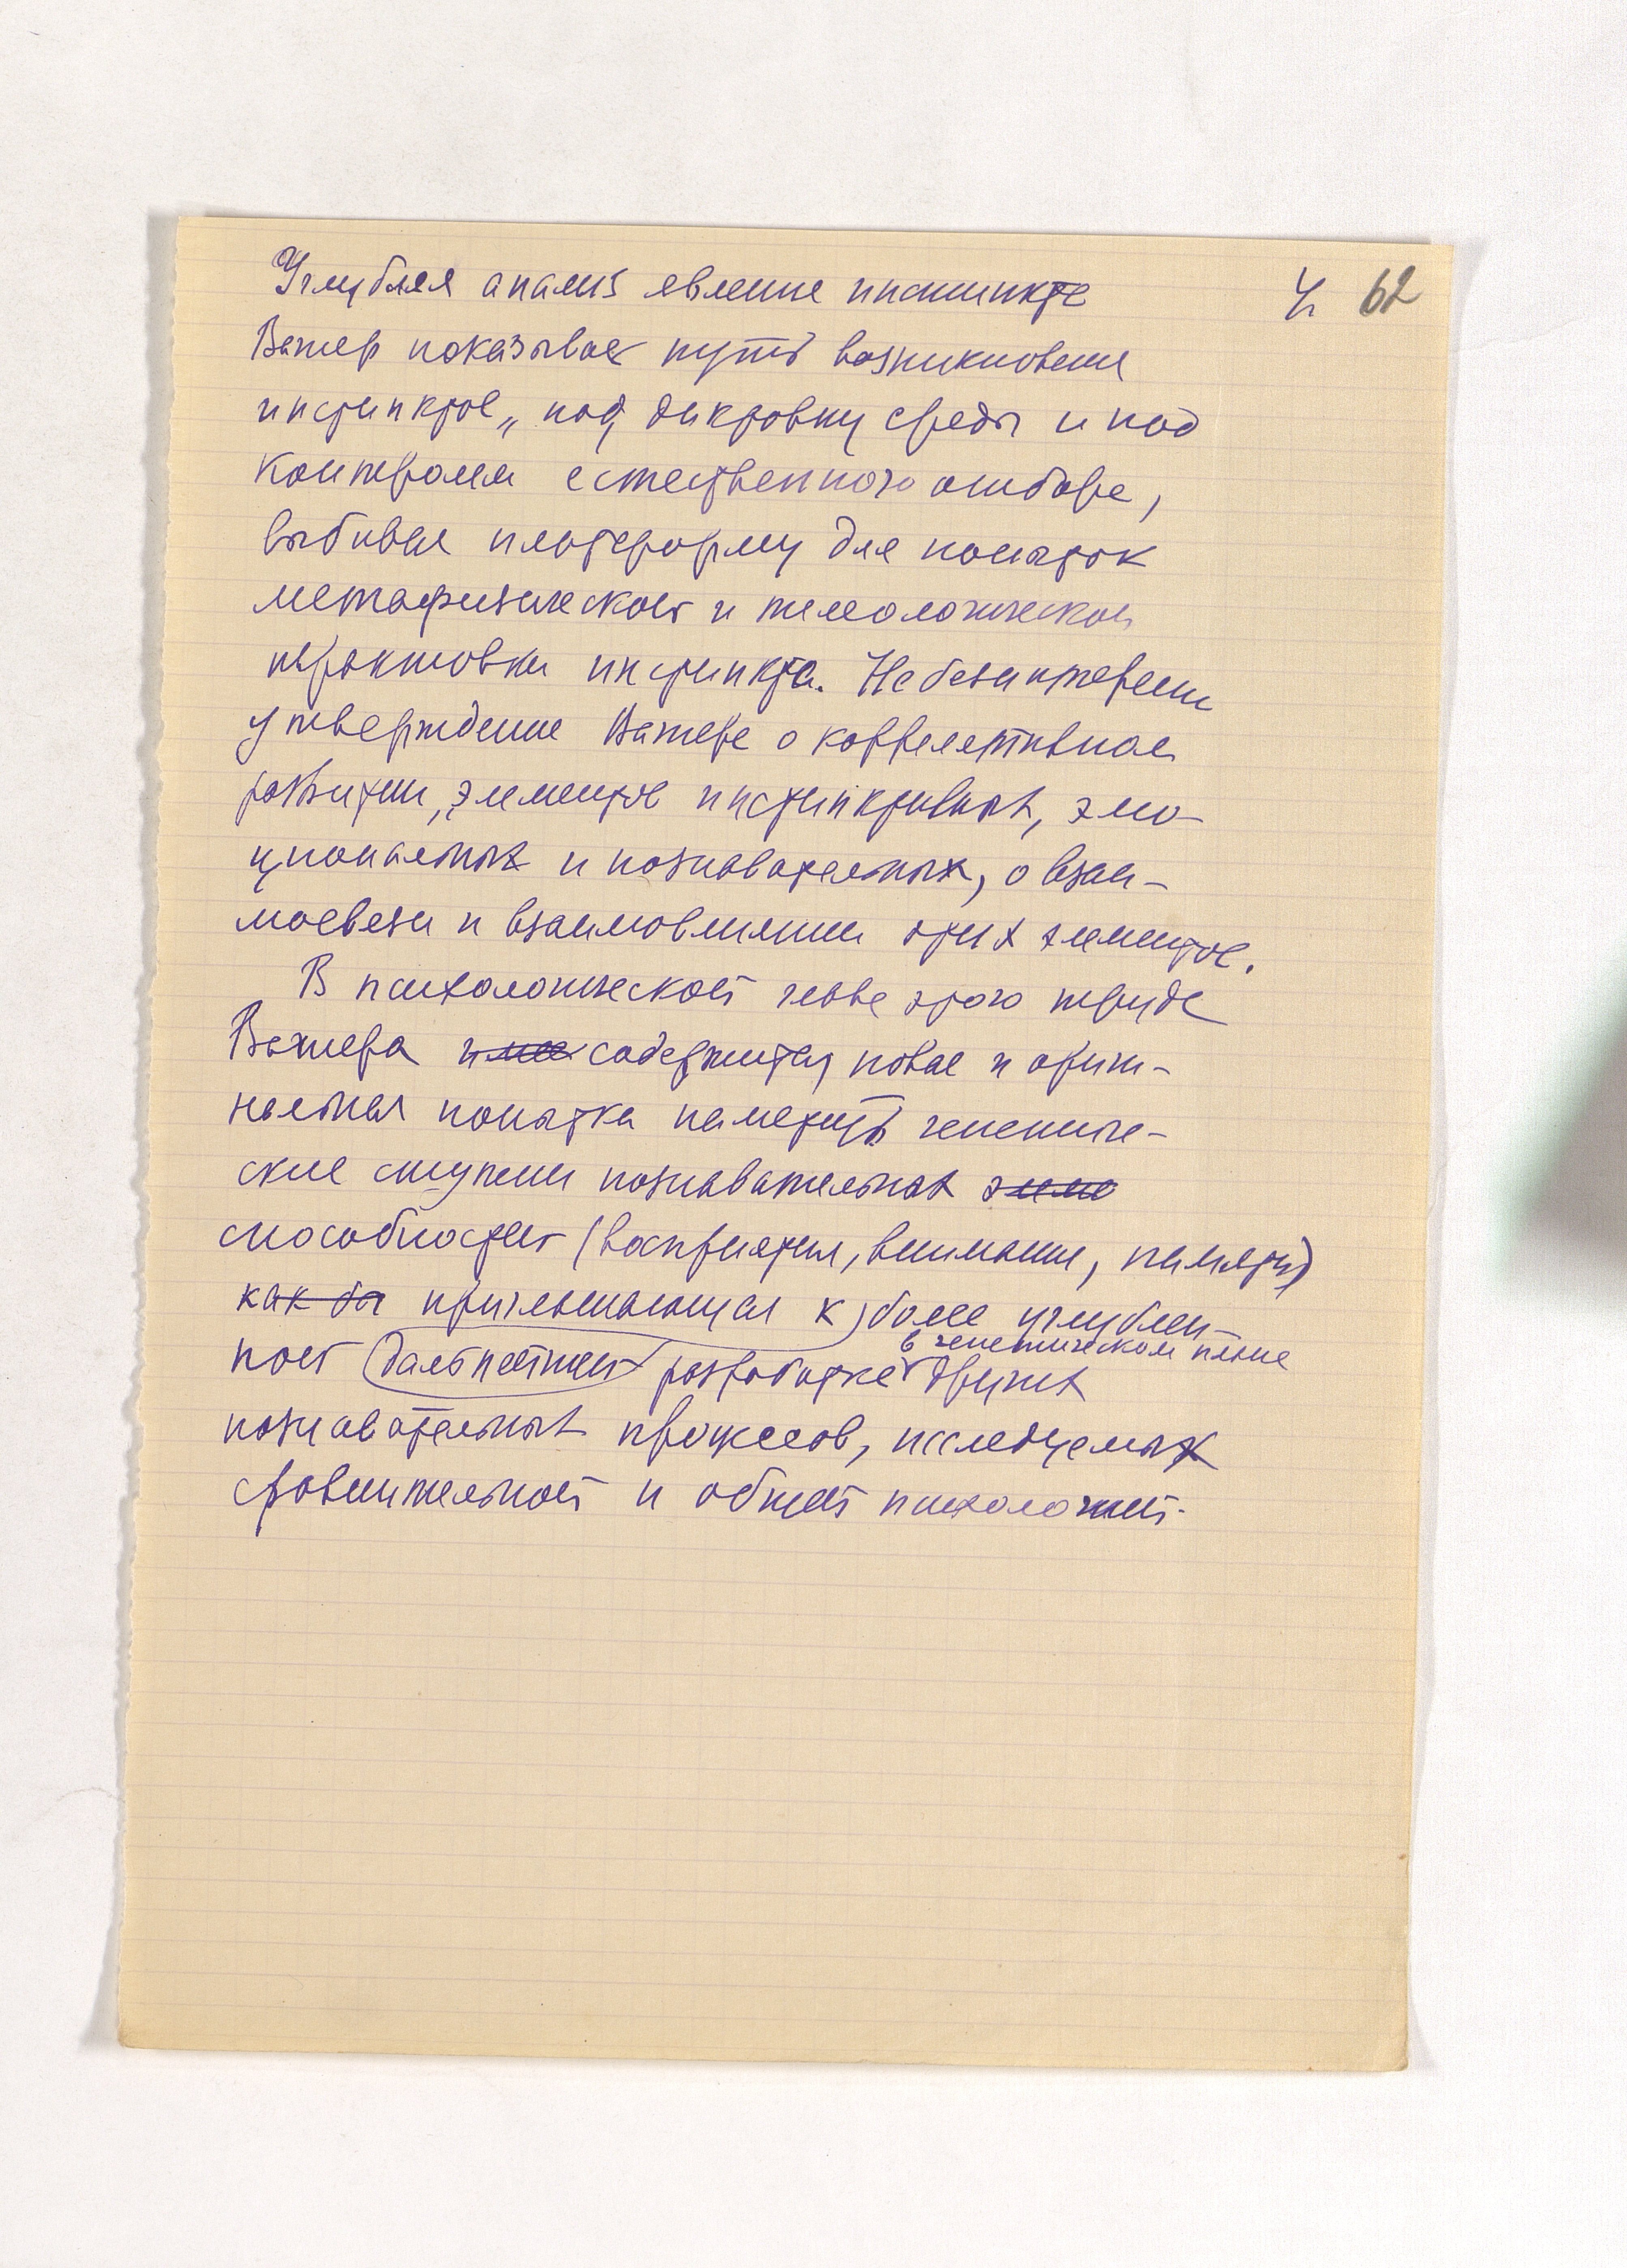 Углубляя анализ явление инстинкта
4 62
Вагнер показывает путь возникновения
инстинктов „под диктовку среды и под
контролем естественного отбора,
выбивая платформу для попыток
метафизической и телеологической
трактовки инстинкта. Небезинтересны
утверждение Вагнера о коррелятивном
развитии, элементов инстинктивных, эмо-
циональных и познавательных, о взаи-
мосвязи и взаимовлиянии этих элементов.
В психологической главе этого труда
Вагнера содержится новая и ориги-
нальная попытка наметить генетиче-
ские ступени познавательных
способностей (восприятия, внимания, памяти)
как бы приглашающая к более углублен-
в генетическом плане
ной дальнейшей разработке других
познавательных процессов, исследуемых
сравнительной и общей психологией.